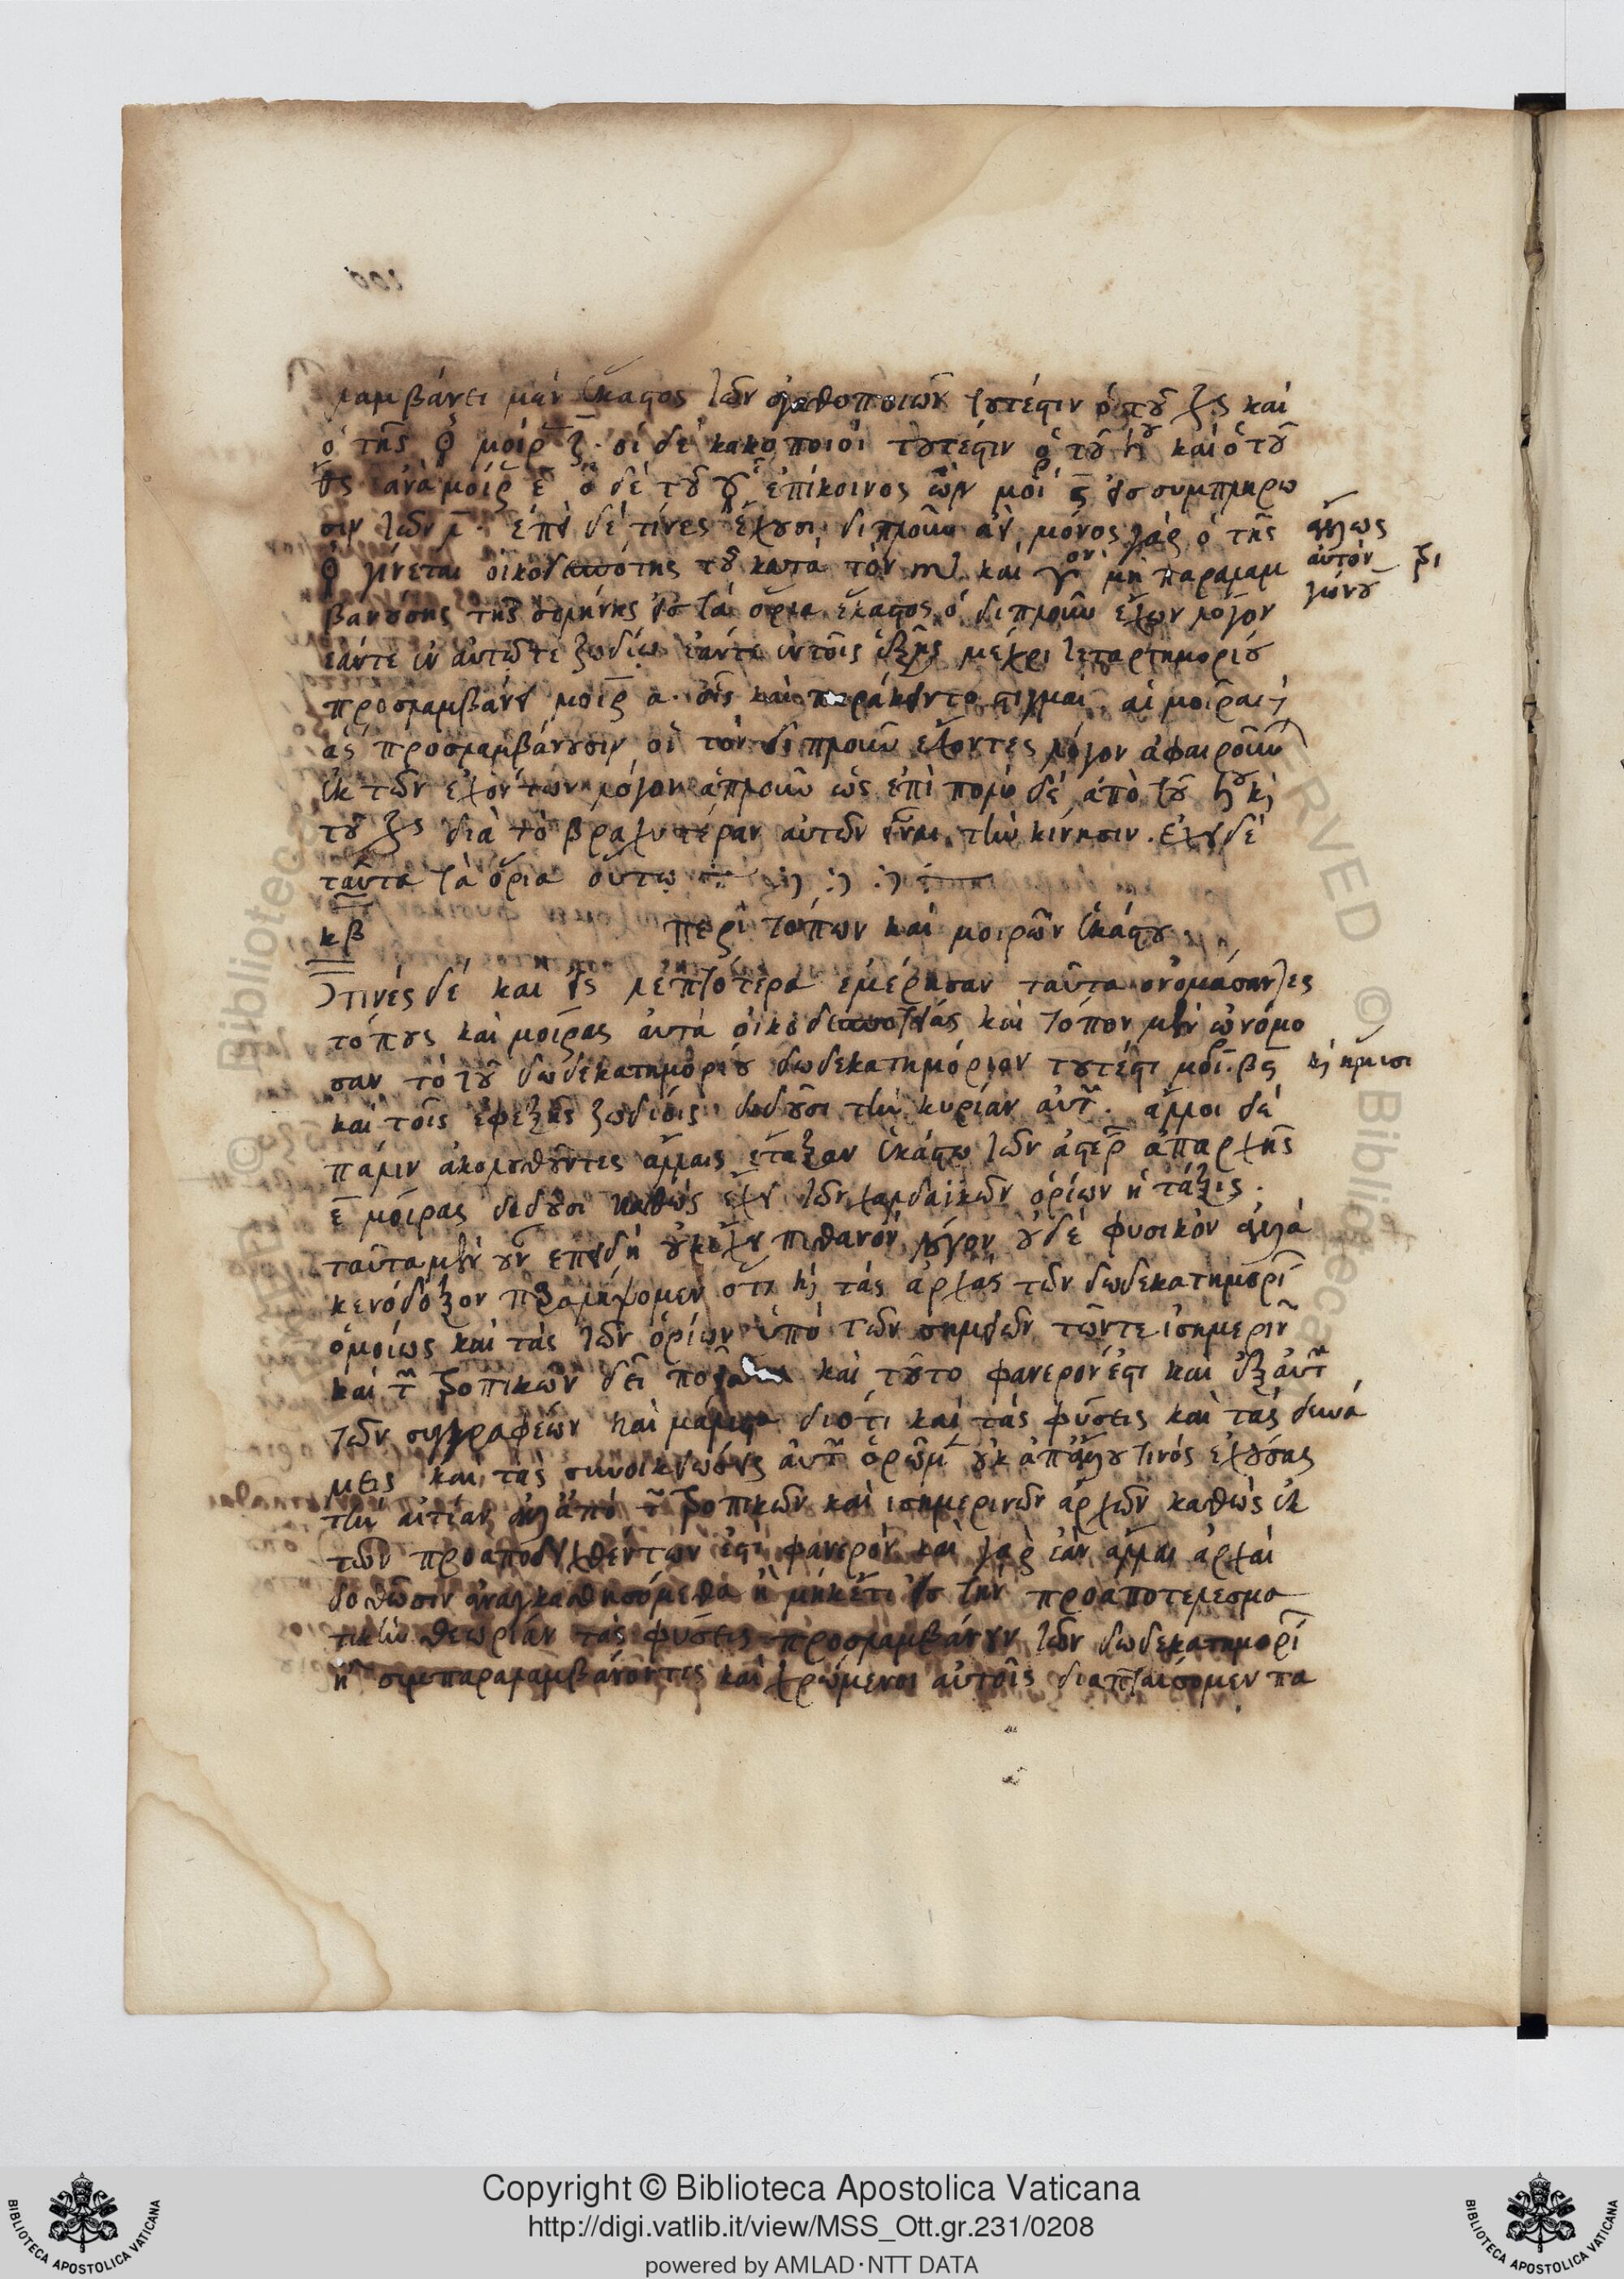 λαμβάνει μὲν ἕκαστος τῶν ἀγαθοποιῶν τουτέστιν ὁ τοῦ ♃ς καὶ
ὁ τῆς ♀ μοίρ ζ. οἱ δὲ κακοποιοὶ τουτέστιν ὁ τοῦ ♄ου καὶ ὁ τοῦ
ἀνὰ μοίρ ε ὁ δὲ τοῦ ☿ ἐπίκοινος ὢν μοί ϛ εἰς συμπλήρω
σιν τῶν λ. ἐπεὶ δέ τινες ἔχουσι διπλοῦν μόνος γὰρ ὁ τῆς
♀ γίνεται οἰκοδεσπότης τοῦ κατὰ τὸν ♏ καὶ ♈ον μὴ παραλαμ
βανούσης τῆς σελήνης εἰς τὰ ὅρια ἕκαστος ὁ διπλοῦν ἔχων λόγον
ἐάντε ἐν αὐτῷ τῷ ζωδίῳ ἐάντε ἐν τοῖς ἑξῆς μέχρι τεταρτημορίου
προσλαμβάνει μοίρ α. οἷς καὶ παράκειντο στιγμαί. αἱ μοῖραι
ἃς προσλαμβάνουσιν οἱ τὸν διπλοῦν ἔχοντες λόγον ἀφαιροῦν
ἐκ τῶν ἐχόντων λόγον ἁπλοῦν ὡς ἐπὶ πολὺ δὲ ἀπὸ τοῦ ♄ου κὶ
τοῦ ♃ς διὰ τὸ βραχυτέραν αὐτῶν εἶναι τὴν κίνησιν. ἔχει δὲ
ταῦτα τὰ ὅρια οὕτω
ἄλλως
αὐτὸν
κβ περὶ τόπων καὶ μοιρῶν ἑκάστου
τινὲς δὲ καὶ εἰς λεπτότερα ἐμέρισαν ταῦτα ὀνομάσαντες
τόπους καὶ μοίρας αὐτὰ οἰκοδεσποτείας καὶ τόπον μὲν ὠνόμα
σαν τὸ τοῦ δωδεκατημορίου δωδεκατημόριον τουτέστι μοί. β κὶ ἥμισι
καὶ τοῖς ἐφεξῆς ζωδίοις διδοῦσι τὴν κυρίαν αὐτ. ἄλλοι δὲ
πάλιν ἀκολουθοῦντες ἄλλαις ἔταξαν ἑκάστῳ τῶν ἀστέρ ἀπαρχῆς
ε μοίρας διδοῦσι καθὼς ἔχει τῶν χαλδαϊκῶν ὁρίων ἡ τάξις.
ταῦτα μὲν οὖν ἐπειδὴ οὐκ ἔχει πιθανὸν λόγον οὐδὲ φυσικὸν ἀλλὰ
κενόδοξον παραλείψομεν ὅτι κὶ τὰς ἀρχὰς τῶν δωδεκατημορί
ὁμοίως καὶ τὰς τῶν ὁρίων ὑπὸ τῶν σημείων τῶντε ἰσημεριν
καὶ τ τροπικῶν δεῖ καὶ τοῦτο φανερόν ἐστι καὶ ἐξ αὐτ
τῶν συγγραφέων καὶ μάλιστα διότι καὶ τὰς φύσεις καὶ τὰς δυνά
μεις καὶ τὰς συνοικειώσεις αὐτ ὁρῶμ οὐκ ἀπάλλου τινὸς ἐχούσας
τὴν αἰτίαν ἀλλ ἀπὸ τ τροπικῶν καὶ ἰσημερινῶν ἀρχῶν καθὼς ἐκ
τῶν προαποδειχθέντων ἐστὶ φανερὸν καὶ γὰρ ἐὰν ἄλλαι ἀρχαὶ
δοθῶσιν ἀναγκασθησόμεθα ἢ μηκέτι εἰς τὴν προαποτελεσμα
τικὴν θεωρίαν τὰς φύσεις προσλαμβάνειν τῶν δωδεκατημορί
ἢ συμπαραλαμβάνοντες καὶ χρώμενοι αὐτοῖς διαπταίσομεν πα
Copyright © Biblioteca Apostolica Vaticana
http://digi.vatlib.it/view/MSS_Ott.gr.231/0208
powered by AMLAD·NTT DATA
BIBLIOTECA APOSTOLICA VATICANA
BIBLIOTECA APOSTOLICA VATICANA